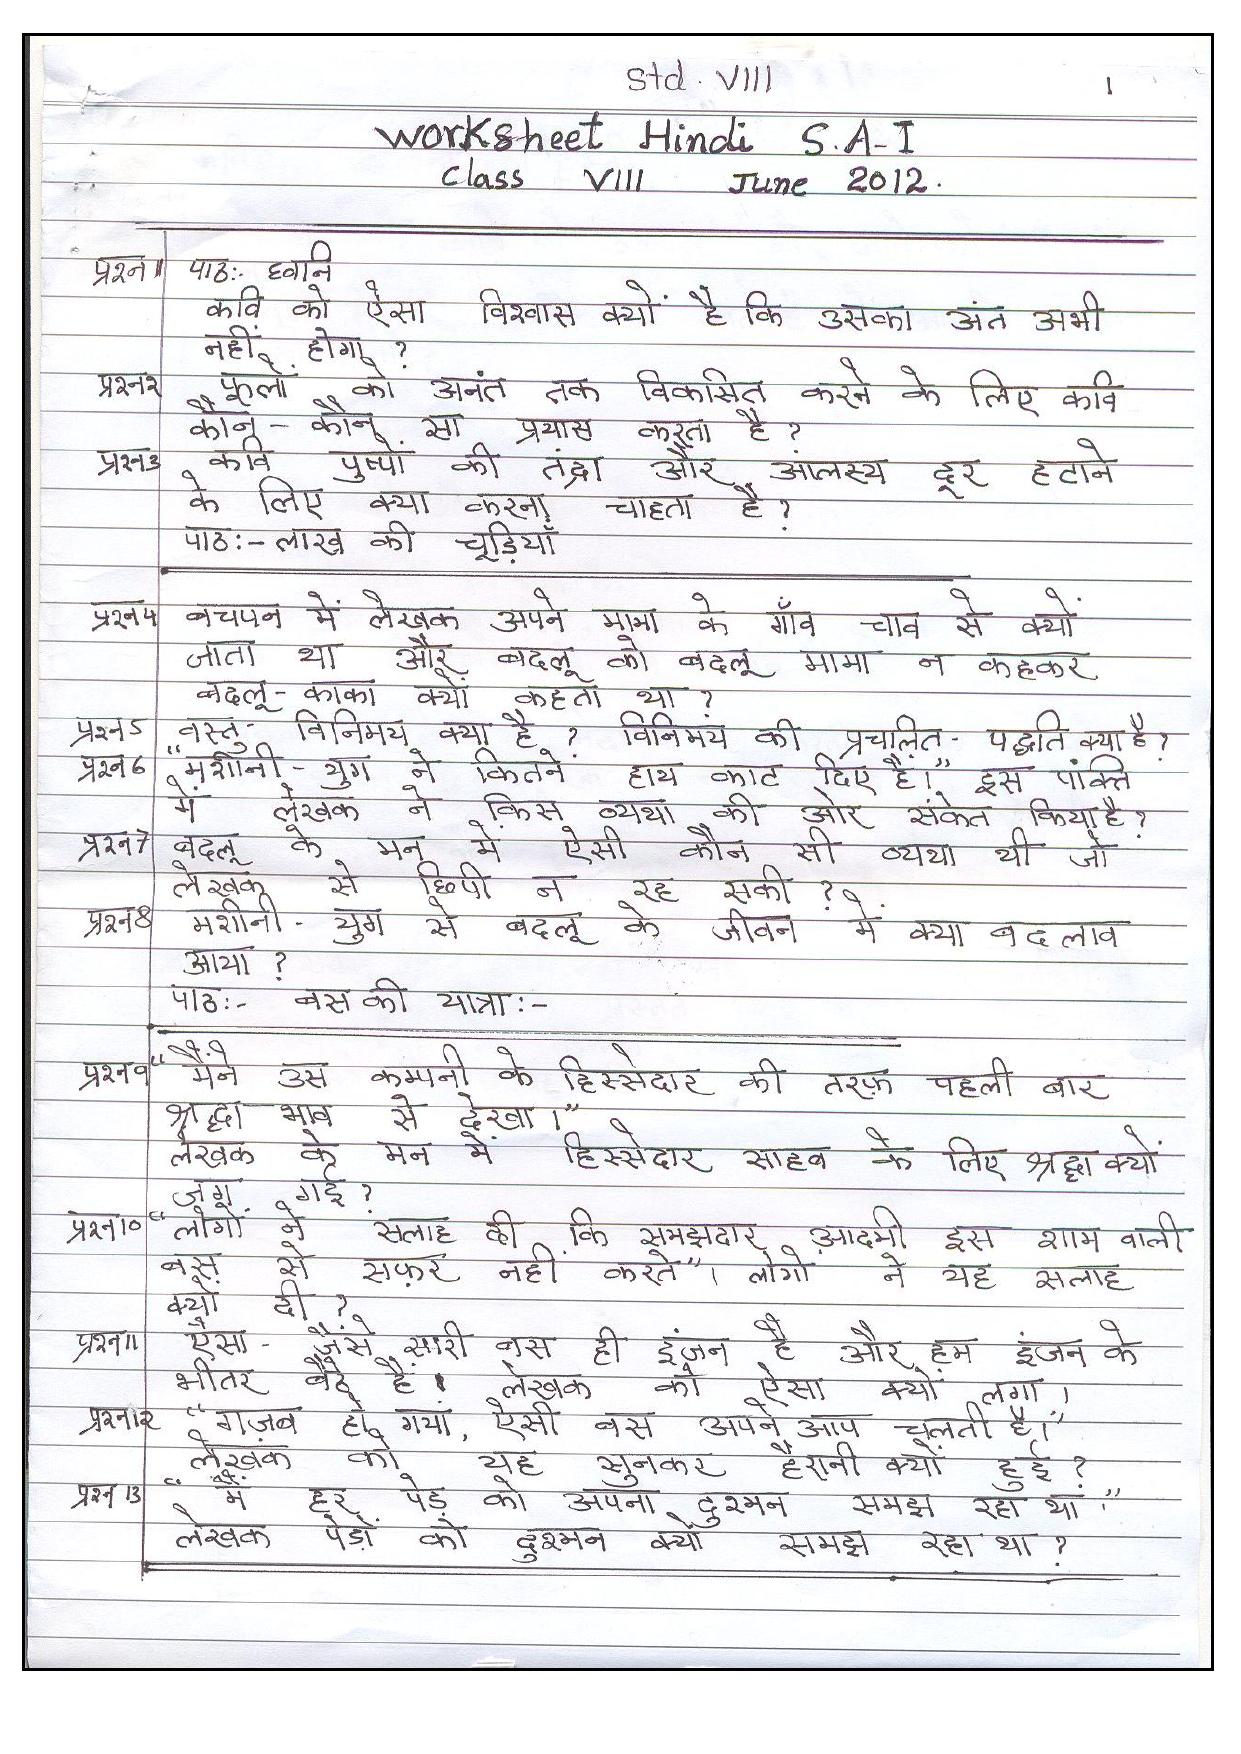 Std. VIII
1
Worksheet Hindi S.A-I
Class VIII June 2012.
प्रश्न1 पाठ:- ध्वनि
कवि को ऐसा विश्वास क्यों है कि उसका अंत अभी
नहीं होगा ?
प्रश्न2 फूलों को अनंत तक विकसित करने के लिए कवि
कौन - कौन सा प्रयास करता है ?
प्रश्न3 कवि पुष्पों की तंद्रा और आलस्य दूर हटाने
के लिए क्या करना चाहता है ?
पाठ:- लाख की चूड़ियाँ
प्रश्न4 बचपन में लेखक अपने मामा के गाँव चाव से क्यों
जाता था और बदलू को बदलू मामा न कहकर
बदलू - काका क्यों कहता था ?
प्रश्न5 वस्तु - विनिमय क्या है ? विनिमय की प्रचलित - पद्धति क्या है ?
प्रश्न6 "मशीनी - युग ने कितने हाथ काट दिए है।" इस पंक्ति
में लेखक ने किस व्यथा की ओर संकेत किया है ?
प्रश्न7 बदलू के मन में ऐसी कौन सी व्यथा थी जो
लेखक से छिपी न रह सकी ?
प्रश्न8 मशीनी - युग से बदलू के जीवन में क्या बदलाव
आया ?
पाठ:- बस की यात्रा :-
प्रश्न9 "मैंने उस कम्पनी के हिस्सेदार की तरफ़ पहली बार
श्रद्धा भाव से देखा।"
लेखक के मन में हिस्सेदार साहब के लिए श्रद्धा क्यों
जग गई ?
प्रश्न10 "लोगों ने सलाह दी कि समझदार आदमी इस शाम वाली
बस से सफ़र नहीं करते"। लोगो ने यह सलाह
क्यों दी ?
प्रश्न11 ऐसा - जैसे सारी बस ही इंजन है और हम इंजन के
भीतर बैठे है। लेखक को ऐसा क्यों लगा।
प्रश्न12 "गज़ब हो गया, ऐसी बस अपने आप चलती है।"
लेखक को यह सुनकर हैरानी क्यों हुई ?
प्रश्न13 "मैं हर पेड़ को अपना दुश्मन समझ रहा था।"
लेखक पेड़ों को दुश्मन क्यों समझ रहा था ?